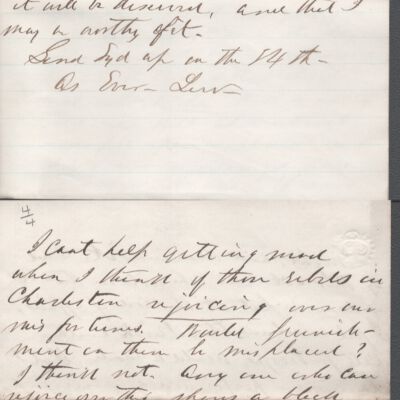 it will be deserved, and that I
may be worthy of it.
Send Syd up on the 84th
As Ever
4/4
I cant help getting mad
when I think of those rebels in
Charleston rejoicing over our
misfortunes. Would punish-
ment on them be misplaced?
I think not. Any one who can
rejoice in this shows a black